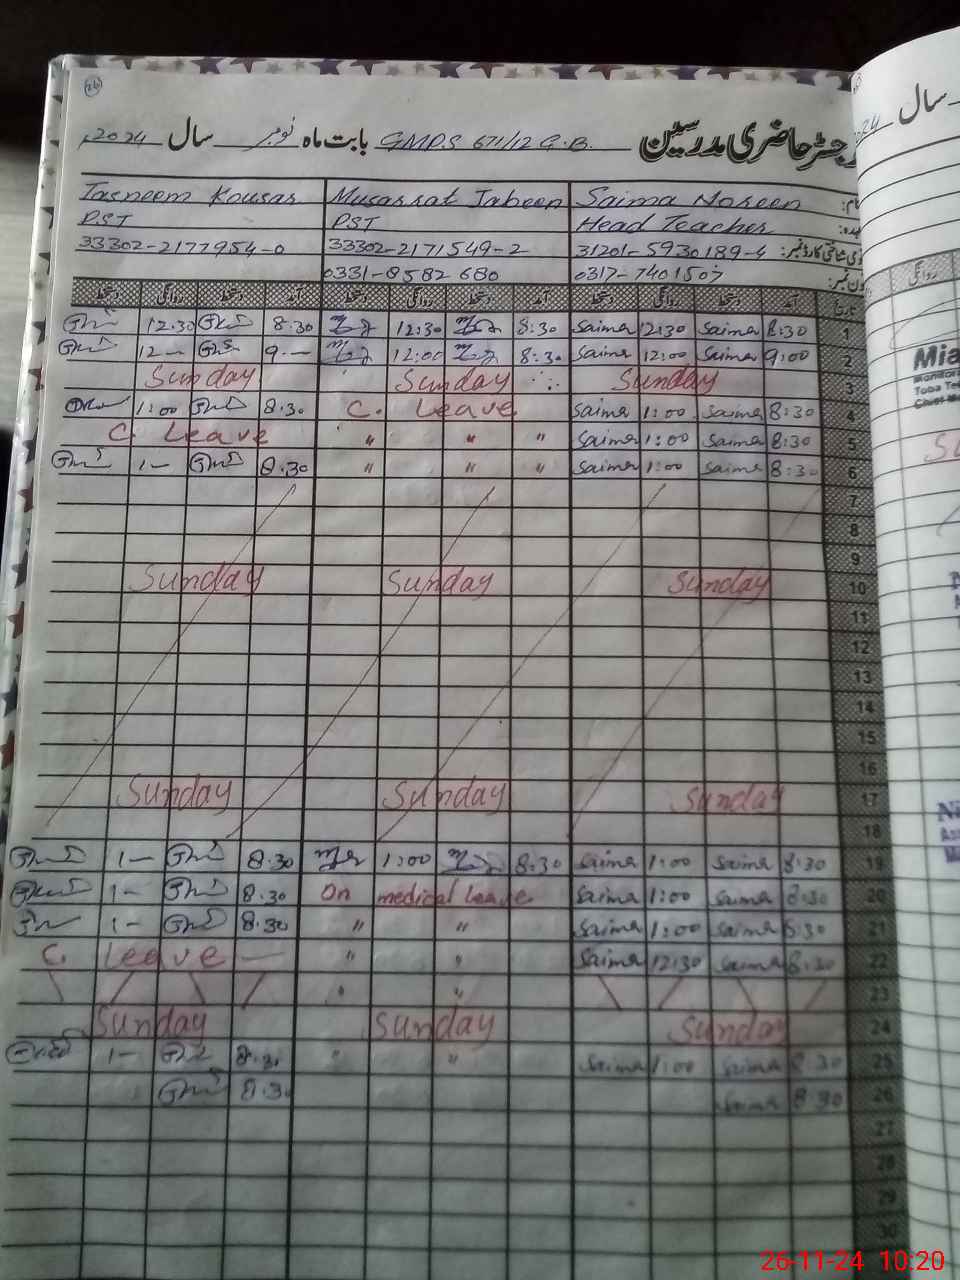 26
رجسٹر حاضری مدرسین GMPS 671/12 G.B. بابت ماہ نومبر سال 2024ء
Tasneem Kousar Musarrat Jabeen Saima Noreen نام:
PST PST Head Teacher عہدہ:
33302-2177954-0 33302-2171549-2 31201-5930189-4 قومی شناختی کارڈ نمبر:
0331-8582680 0317-7401507 فون نمبر:
دستخط روانگی دستخط آمد دستخط روانگی دستخط آمد دستخط روانگی دستخط آمد تاریخ
12.30 8.30 12:30 8:30 Saima 12:30 Saima 8:30 1
12— 9.— 12:00 8:30 Saima 12:00 Saima 9:00 2
Sunday Sunday Sunday 3
1:00 8.30 C. Leave Saima 1:00 Saima 8:30 4
C. Leave " " " Saima 1:00 Saima 8:30 5
1— 8.30 " " " Saima 1:00 Saima 8:30 6
7
8
9
Sunday Sunday Sunday 10
11
12
13
14
15
16
Sunday Sunday Sunday 17
18
1— 8.30 1:00 8:30 Saima 1:00 Saima 8:30 19
1— 8.30 On medical leave Saima 1:00 Saima 8:30 20
1— 8.30 " " Saima 1:00 Saima 8:30 21
C. Leave — " " Saima 12:30 Saima 8:30 22
" " 23
Sunday Sunday Sunday 24
1— 8.30 " " Saima 1:00 Saima 8 30 25
8.30 Saima 8.30 26
27
28
29
30
سال
روانگی
Mia
Monitor
Toba Te
Chief M
26-11-24 10:20